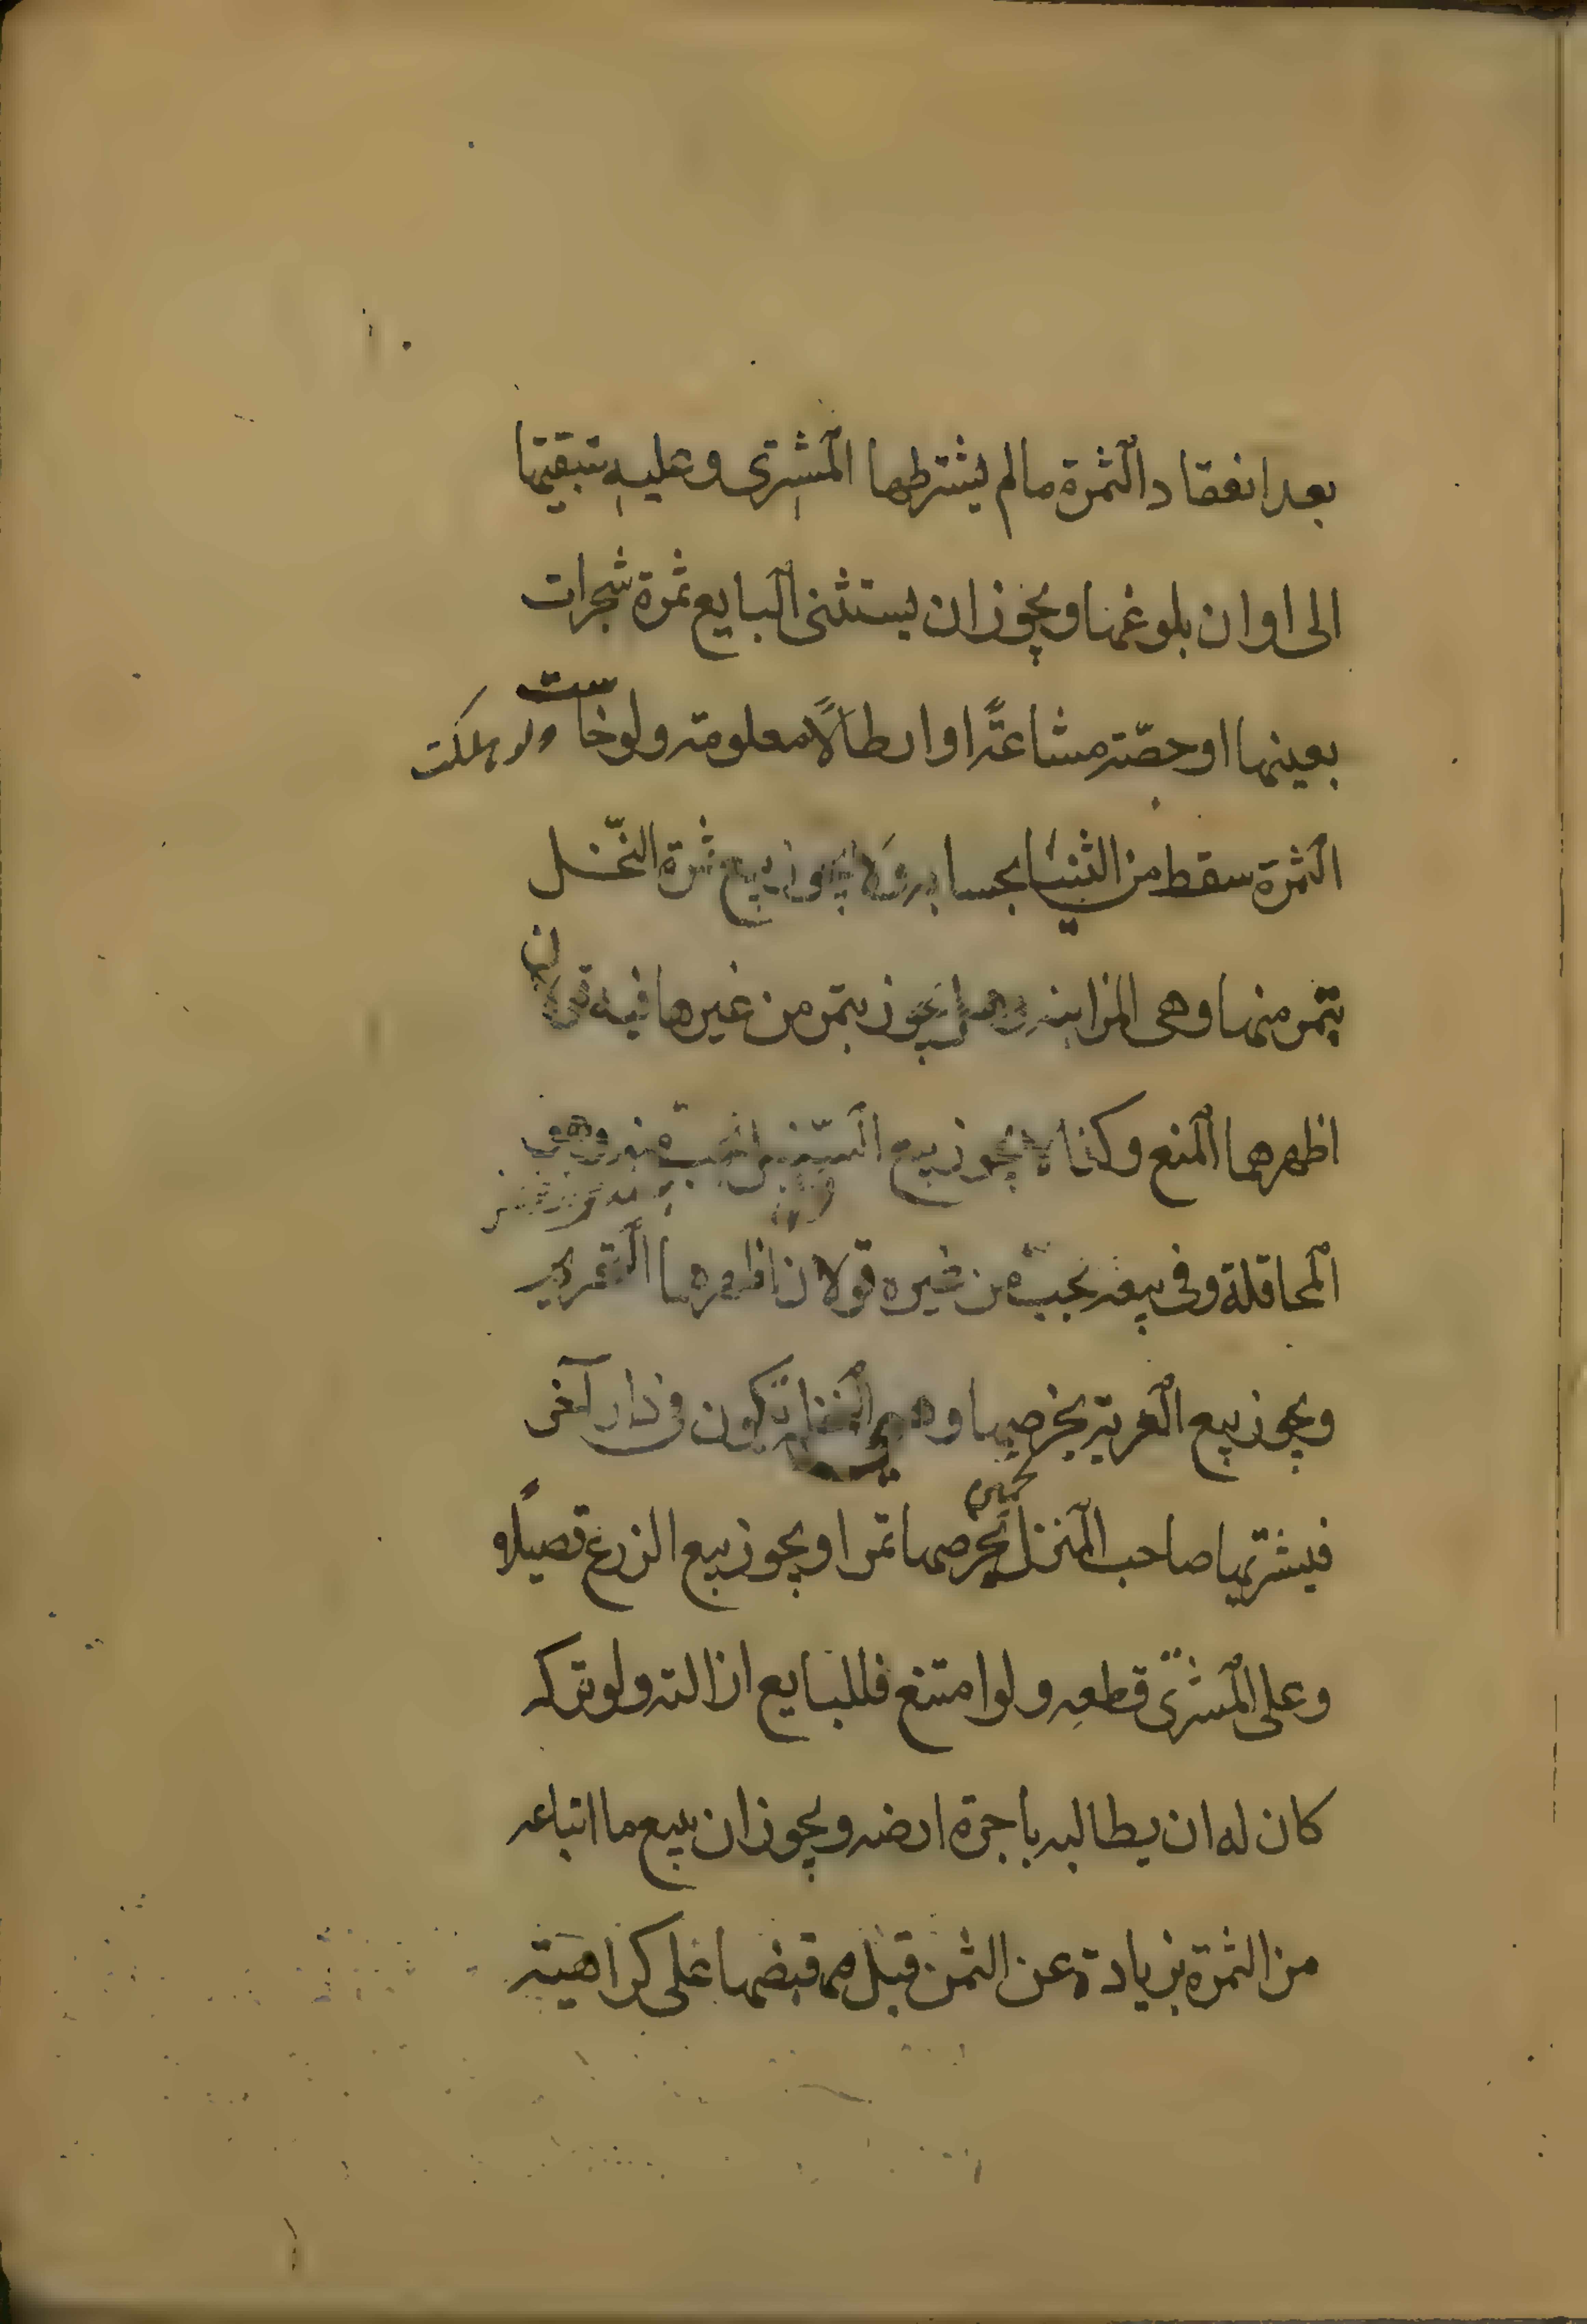 بعد انعقاد الثمرة مالم يشترطها المشترى وعليه تبقيتها
الى اوان بلوغها ويجوز ان يستثنى البايع ثمرة شجرات
بعينها او حصّة مشاعةً او ارطالاً معلومة ولو خاست
ولو هلكت
الثمرة سقط من الثنيا بحسابه ولا يجوز بيع ثمرة النّخل
بتمر منها وهى المزابنه وهل يجوز بتمر من غيرها فيه قولان
اظهرهما المنع وكذا لا يجوز بيع السّنبل بحبّ منه وهى
المحاقلة وفى بيعه بحبّ من غيره قولان اظهرهما التحريم
ويجوز بيع العرية بخرصها وهى النخلة تكون فى دار آخر
فيشتريها صاحب المنزل بخرصها تمرا ويجوز بيع الزرع قصيلاً و
على المشترى قطعه ولو امتنع فللبايع ازالته ولو تركه
كان له ان يطالبه باجرة ارضه ويجوز ان يبيع ما ابتاعه
من الثمرة بزيادة عن الثمن قبل قبضها على كراهية